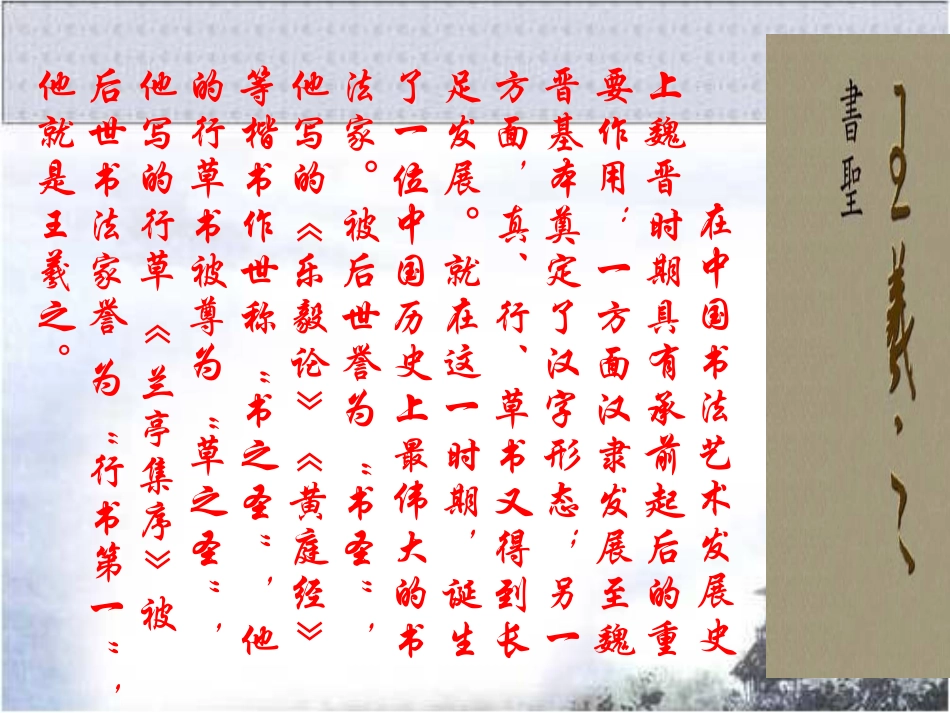 王羲之
書聖
在中国书法艺术发展史
上魏晋时期具有承前起后的重
要作用：一方面汉隶发展至魏
晋基本奠定了汉字形态；另一
方面，真、行、草书又得到长
足发展。就在这一时期，诞生
了一位中国历史上最伟大的书
法家。被后世誉为“书圣”，
他写的《乐毅论》《黄庭经》
等楷书作世称“书之圣”，他
的行草书被尊为“草之圣”，
他写的行草《兰亭集序》被
后世书法家誉为“行书第一”，
他就是王羲之。